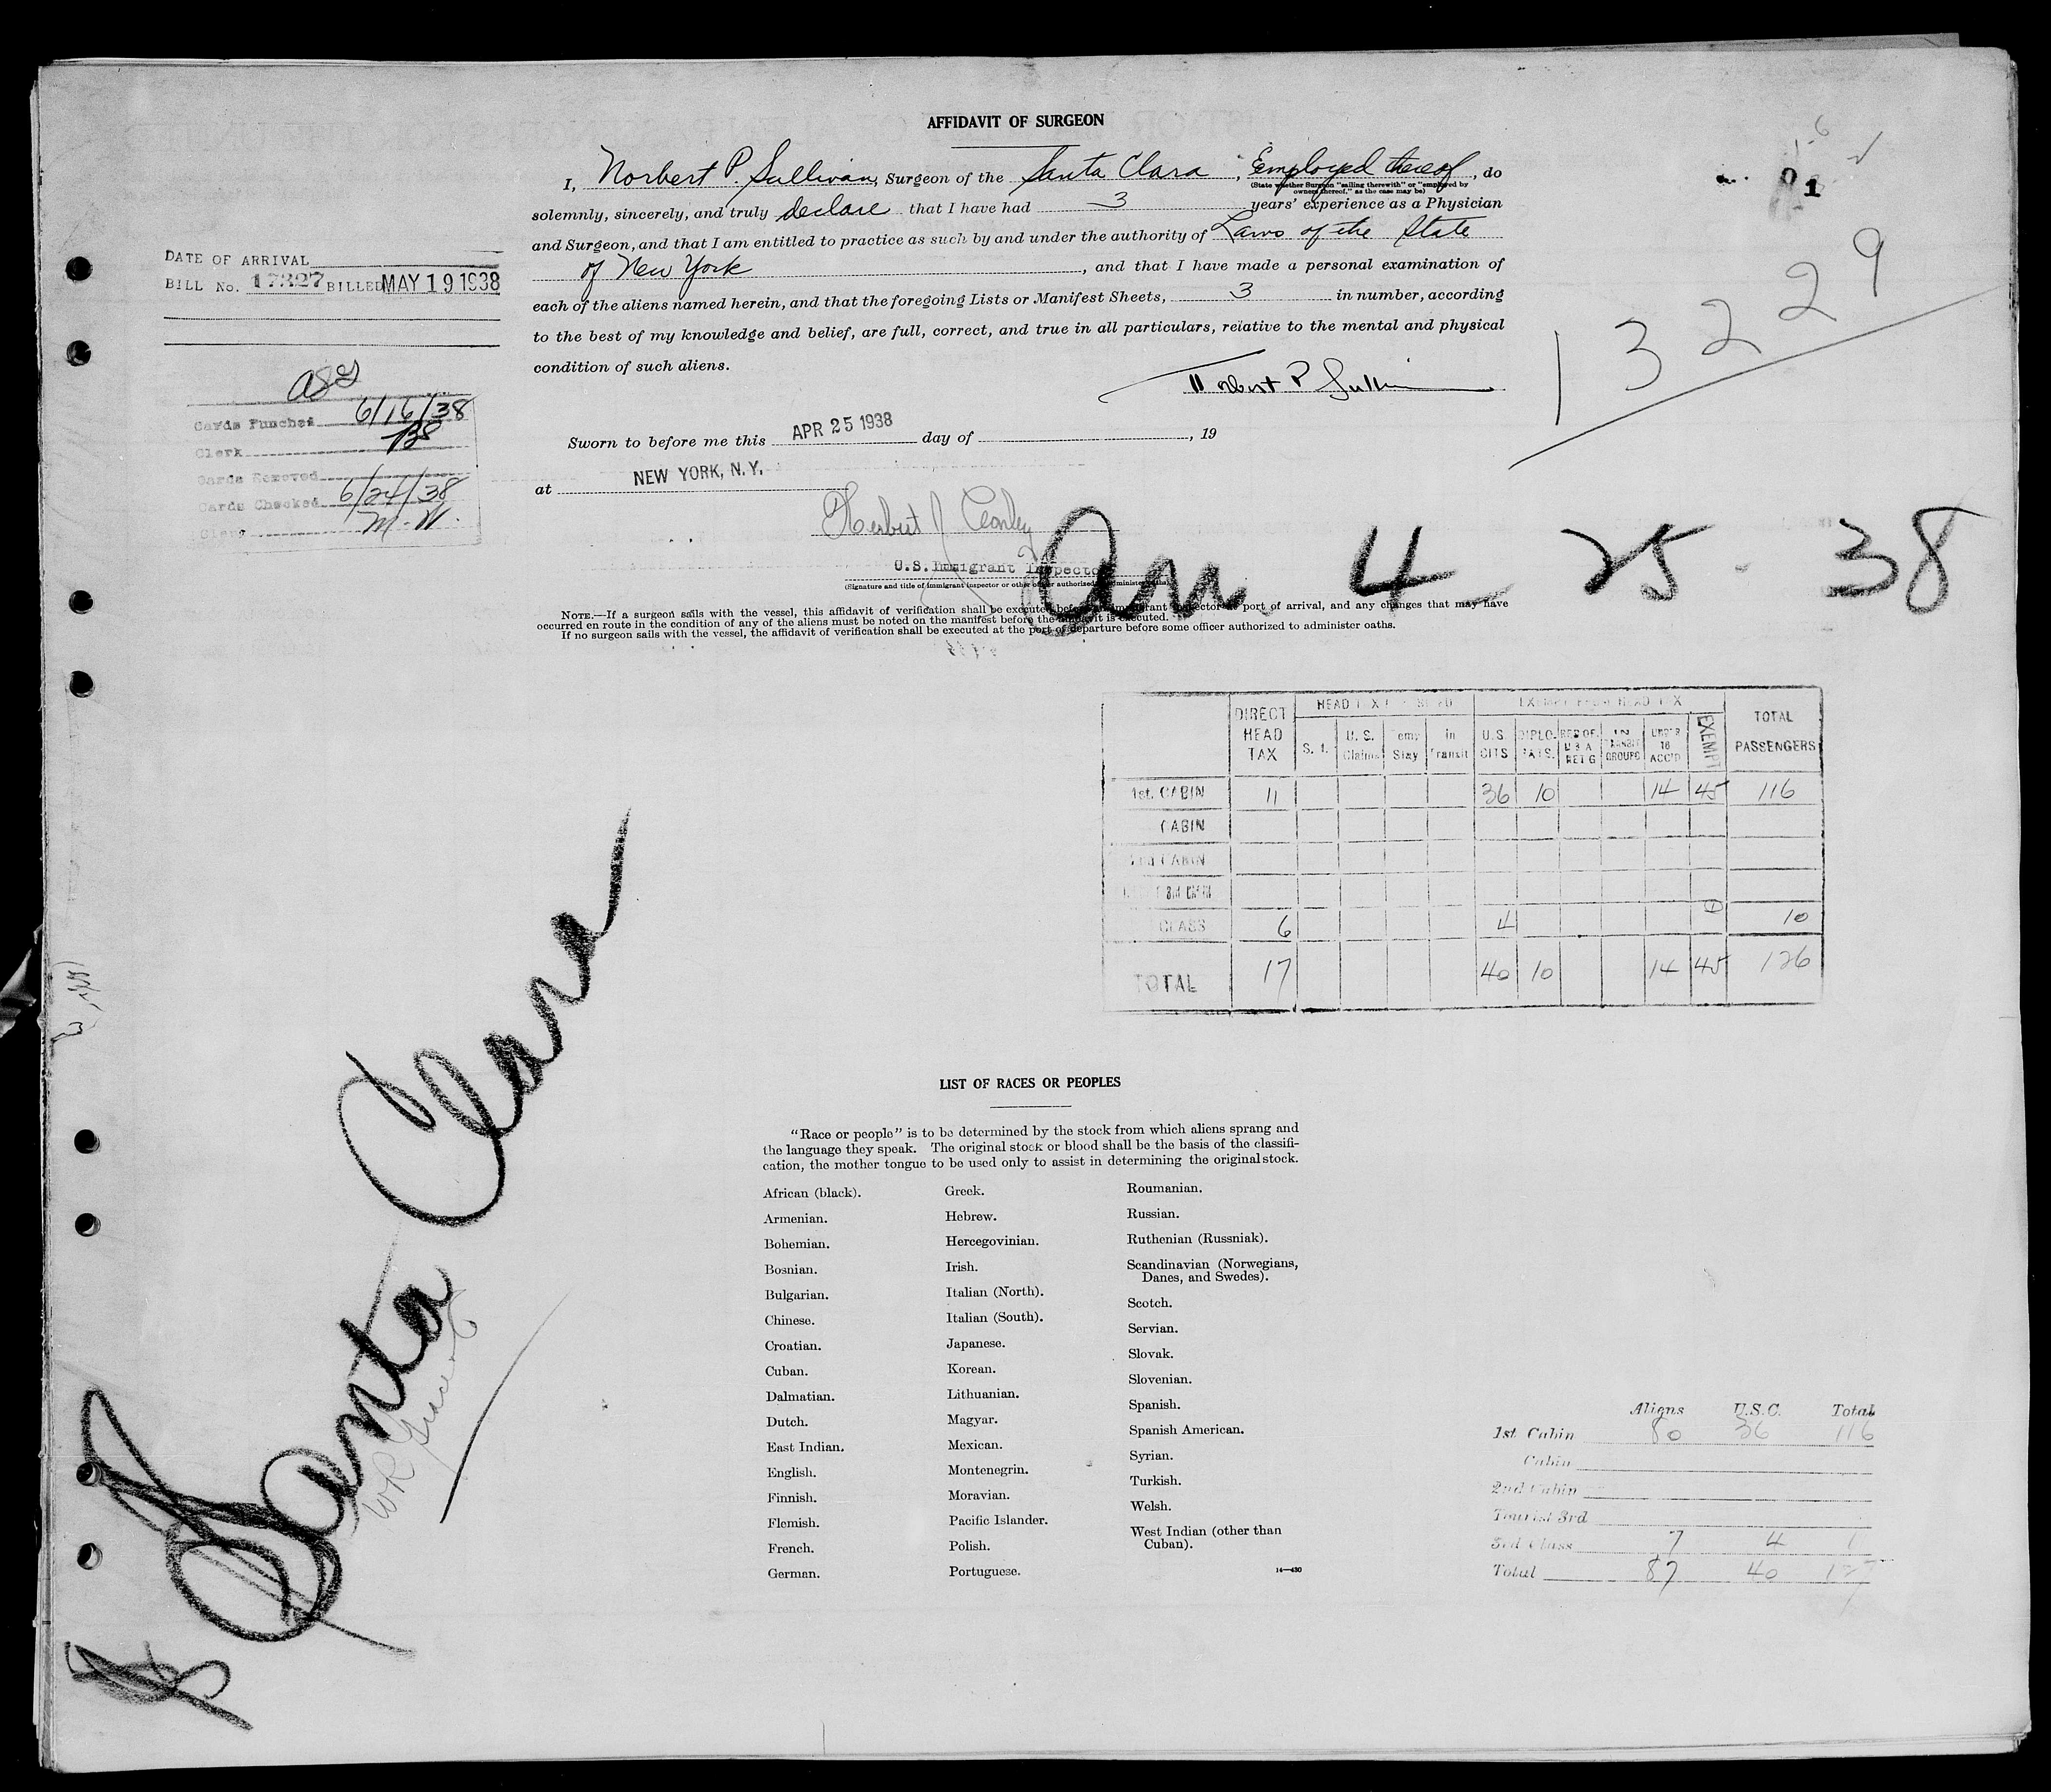 AFFIDAVIT OF SURGEON
I, Norbert P. Sullivan, Surgeon of the Santa Clara, Employed thereof, do
(State whether Surgeon "sailing therewith" or "employed by
owners thereof," as the case may be)
solemnly, sincerely, and truly declare that I have had 3 years' experience as a Physician
and Surgeon, and that I am entitled to practice as such by and under the authority of Laws of the State
of New York, and that I have made a personal examination of
each of the aliens named herein, and that the foregoing Lists or Manifest Sheets, 3 in number, according
to the best of my knowledge and belief, are full, correct, and true in all particulars, relative to the mental and physical
condition of such aliens.
Norbert P Sullivan
Sworn to before me this APR 25 1938 day of , 19
at NEW YORK, N.Y.
Herbert J
U.S. Immigrant Inspector
(Signature and title of immigrant inspector or other officer authorized to administer oaths)
NOTE.—If a surgeon sails with the vessel, this affidavit of verification shall be executed before an immigrant inspector at port of arrival, and any changes that may have
occurred en route in the condition of any of the aliens must be noted on the manifest before the affidavit is executed.
If no surgeon sails with the vessel, the affidavit of verification shall be executed at the port of departure before some officer authorized to administer oaths.
DATE OF ARRIVAL
BILL No. 17327 BILLED MAY 19 1938
Cards Punched 6/16/38
Clerk
Cards Removed
Cards Checked 6/24/38
Clerk M.W.
1
13229
Arr. 4-25-38
DIRECT HEAD TAX
S. I. U. S. Claims Temp Stay in Transit U.S. CITS DIPLOMATS. IN TRANSIT GROUPS UNDER 16 ACC'D EXEMPT TOTAL PASSENGERS
1st. CABIN 11 36 10 14 45 116
CABIN
2nd CABIN
CLASS 6 4 0 10
TOTAL 17 40 10 14 45 126
Santa Clara
WR Grace Co
LIST OF RACES OR PEOPLES
"Race or people" is to be determined by the stock from which aliens sprang and
the language they speak. The original stock or blood shall be the basis of the classifi-
cation, the mother tongue to be used only to assist in determining the original stock.
African (black).
Armenian.
Bohemian.
Bosnian.
Bulgarian.
Chinese.
Croatian.
Cuban.
Dalmatian.
Dutch.
East Indian.
English.
Finnish.
Flemish.
French.
German.
Greek.
Hebrew.
Hercegovinian.
Irish.
Italian (North).
Italian (South).
Japanese.
Korean.
Lithuanian.
Magyar.
Mexican.
Montenegrin.
Moravian.
Pacific Islander.
Polish.
Portuguese.
Roumanian.
Russian.
Ruthenian (Russniak).
Scandinavian (Norwegians,
Danes, and Swedes).
Scotch.
Servian.
Slovak.
Slovenian.
Spanish.
Spanish American.
Syrian.
Turkish.
Welsh.
West Indian (other than
Cuban).
14—430
Aliens U.S.C. Total
1st Cabin 80 36 116
Cabin
2nd Cabin
Tourist 3rd
3rd Class 7 4
Total 87 40 127